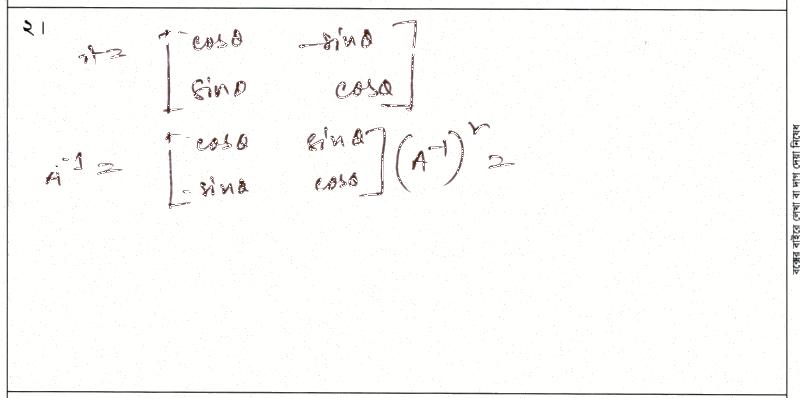 ২।
A = [ cosθ -sinθ
sinθ cosθ ]
A⁻¹ = [ cosθ sinθ
-sinθ cosθ ] (A⁻¹)² =
বক্সের বাইরে লেখা বা দাগ দেয়া নিষেধ